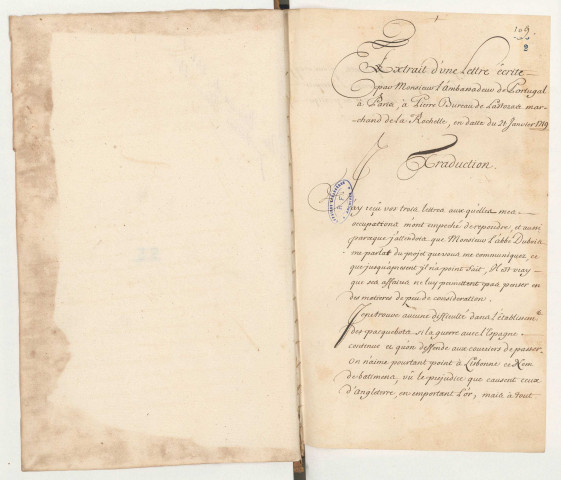 109.
2
Extrait d'une Lettre écrite
par Monsieur l'Ambassadeur de Portugal
à Paris, à Pierre Bureau de Lastozas mar-
chand de la Rochelle, en datte du 21 Janvier 1719
Traduction.
J'ay reçû vos trois lettres aux quelles mes
occupations m'ont empeché de repondre, et aussi
parceque j'attendois que Monsieur l'abbé Dubois
me parlat du projet que vous me communiquez, ce
que jusqu'apresent il n'a point fait, Il est vray
que ses affaires ne luy permettent pas penser en
des matieres de peu de consideration.
Je ne trouve aucune difficulté dans l'établissem.t
des pacquebots, si la guerre avec l'Espagne
continue et qu'on deffende aux couriers de passer.
On n'aime pourtant point à Lisbonne ce Nom
de batimens, vû le prejudice que causent ceux
d'Angleterre, en emportant l'or, mais à tout